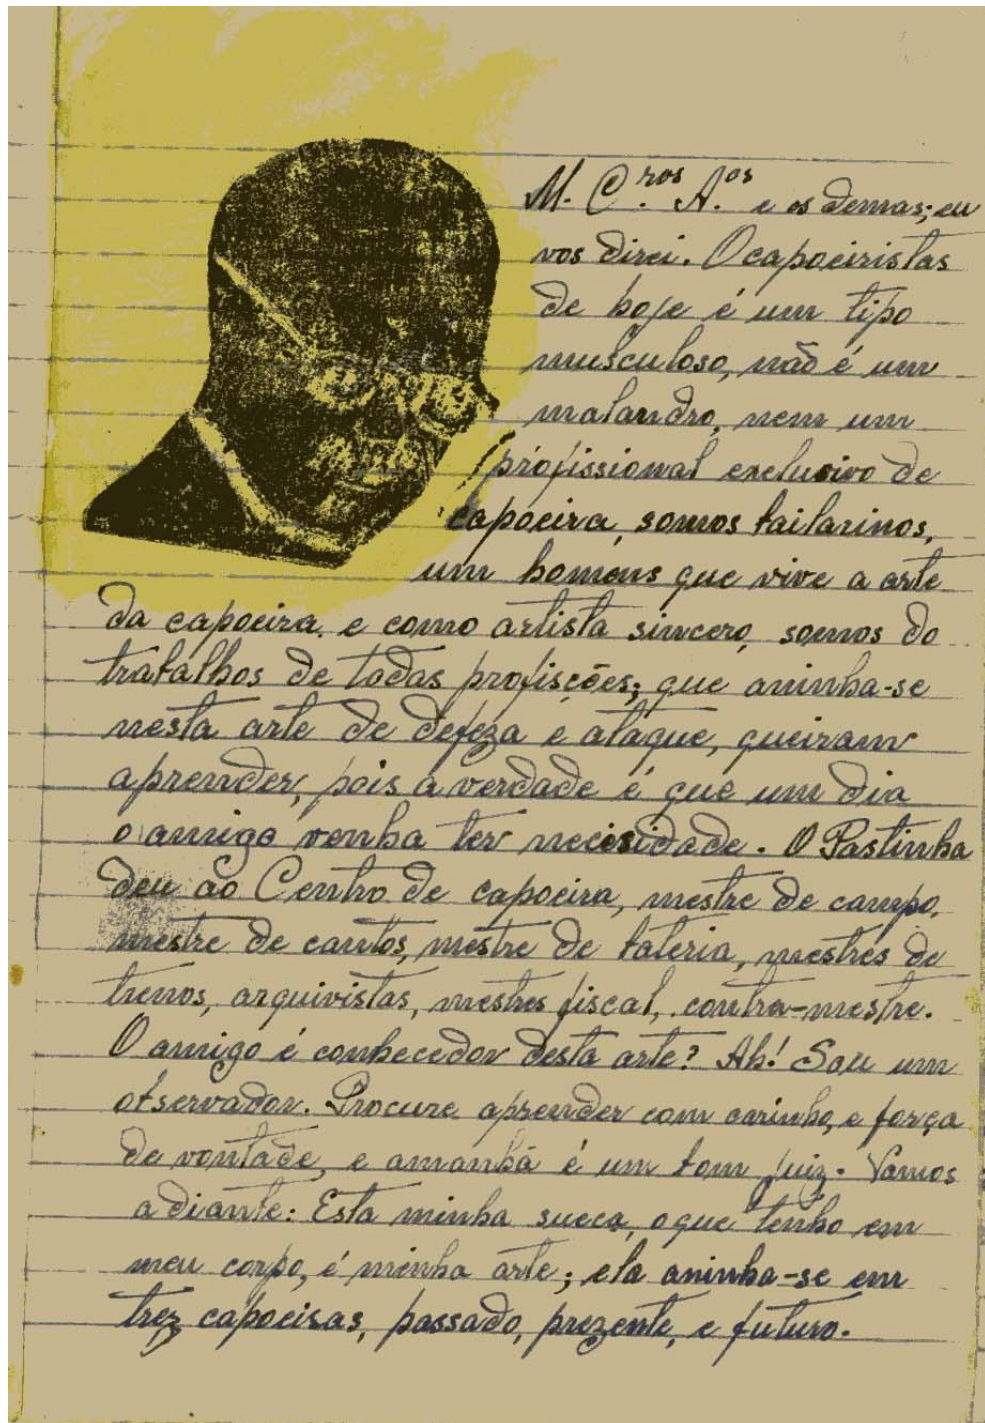 M. C.ros A.os e os demas; eu
vos direi. O capoeiristas
de hoje é um tipo
musculoso, não é um
malandro, nem um
profissional exclusivo de
capoeira, somos bailarinos,
um homens que vive a arte
da capoeira, e como artista sincero, somos do
trabalhos de todas profiscões; que aninha-se
nesta arte de defeza e ataque, queiram
aprender, pois a verdade é que um dia
o amigo venha ter necesidade. O Pastinha
deu ao Centro de capoeira, mestre de campo,
mestre de cantos, mestre de bateria, mestres de
trenos, arquivistas, mestres fiscal, contra-mestre.
O amigo é conhecedor desta arte? Ah! Sou um
observador. Procure aprender com carinho, e força
de vontade, e amanhã é um bom juiz. Vamos
adiante: Esta minha sueca, o que tenho em
meu corpo, é minha arte; ela aninha-se em
trez capoeisas, passado, prezente, e futuro.